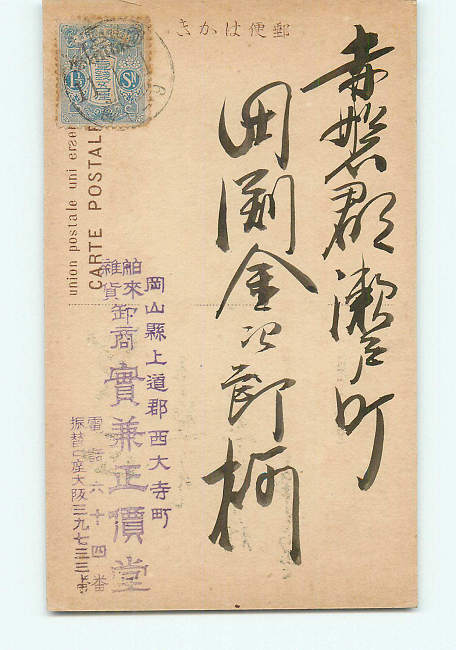 郵便はかき
赤磐郡瀬戸町
田渕金次郎様
岡山縣上道郡西大寺町
舶來雜貨卸商實兼正價堂
電話六十四番
振替口座大阪三九七三三番
union postale universe
CARTE POSTALE
1½ Sn